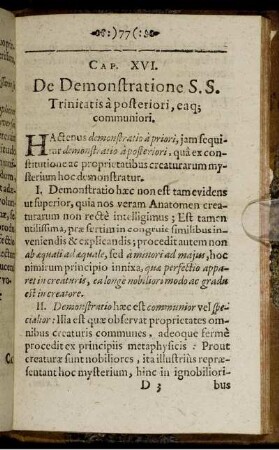 :) 77 (:
CAP. XVI.
De Demonstratione S.S.
Trinitatis à posteriori, eaq;
communiori.
HActenus demonstratio à priori, jam sequi-
tur demonstratio à posteriori, quâ ex con-
stitutione ac proprietatibus creaturarum my-
sterium hoc demonstratur.
I. Demonstratio hæc non est tam evidens
ut superior, quia nos veram Anatomen crea-
turarum non rectè intelligimus; Est tamen
utilissima, præsertim in congruis similibus in-
veniendis & explicandis; procedit autem non
ab æquali ad æquale, sed à minori ad majus, hoc
nimirum principio innixa, qua perfectio appa-
ret in creaturis, ea longè nobiliori modo ac gradu
est in creatore.
II. Demonstratio hæc est communior vel spe-
cialior: Illa est quæ observat proprietates om-
nibus creaturis communes, adeoque fermè
procedit ex principiis metaphysicis: Prout
creaturæ sunt nobiliores, ita illustriùs repræ-
sentant hoc mysterium, hinc in ignobiliori-
D 3 bus